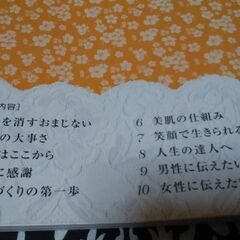 内容〕
を消すおまじない
の大事さ
はここから
に感謝
づくりの第一歩
6 美肌の仕組み
7 笑顔で生きられる
8 人生の達人へ
9 男性に伝えたい
10 女性に伝えた